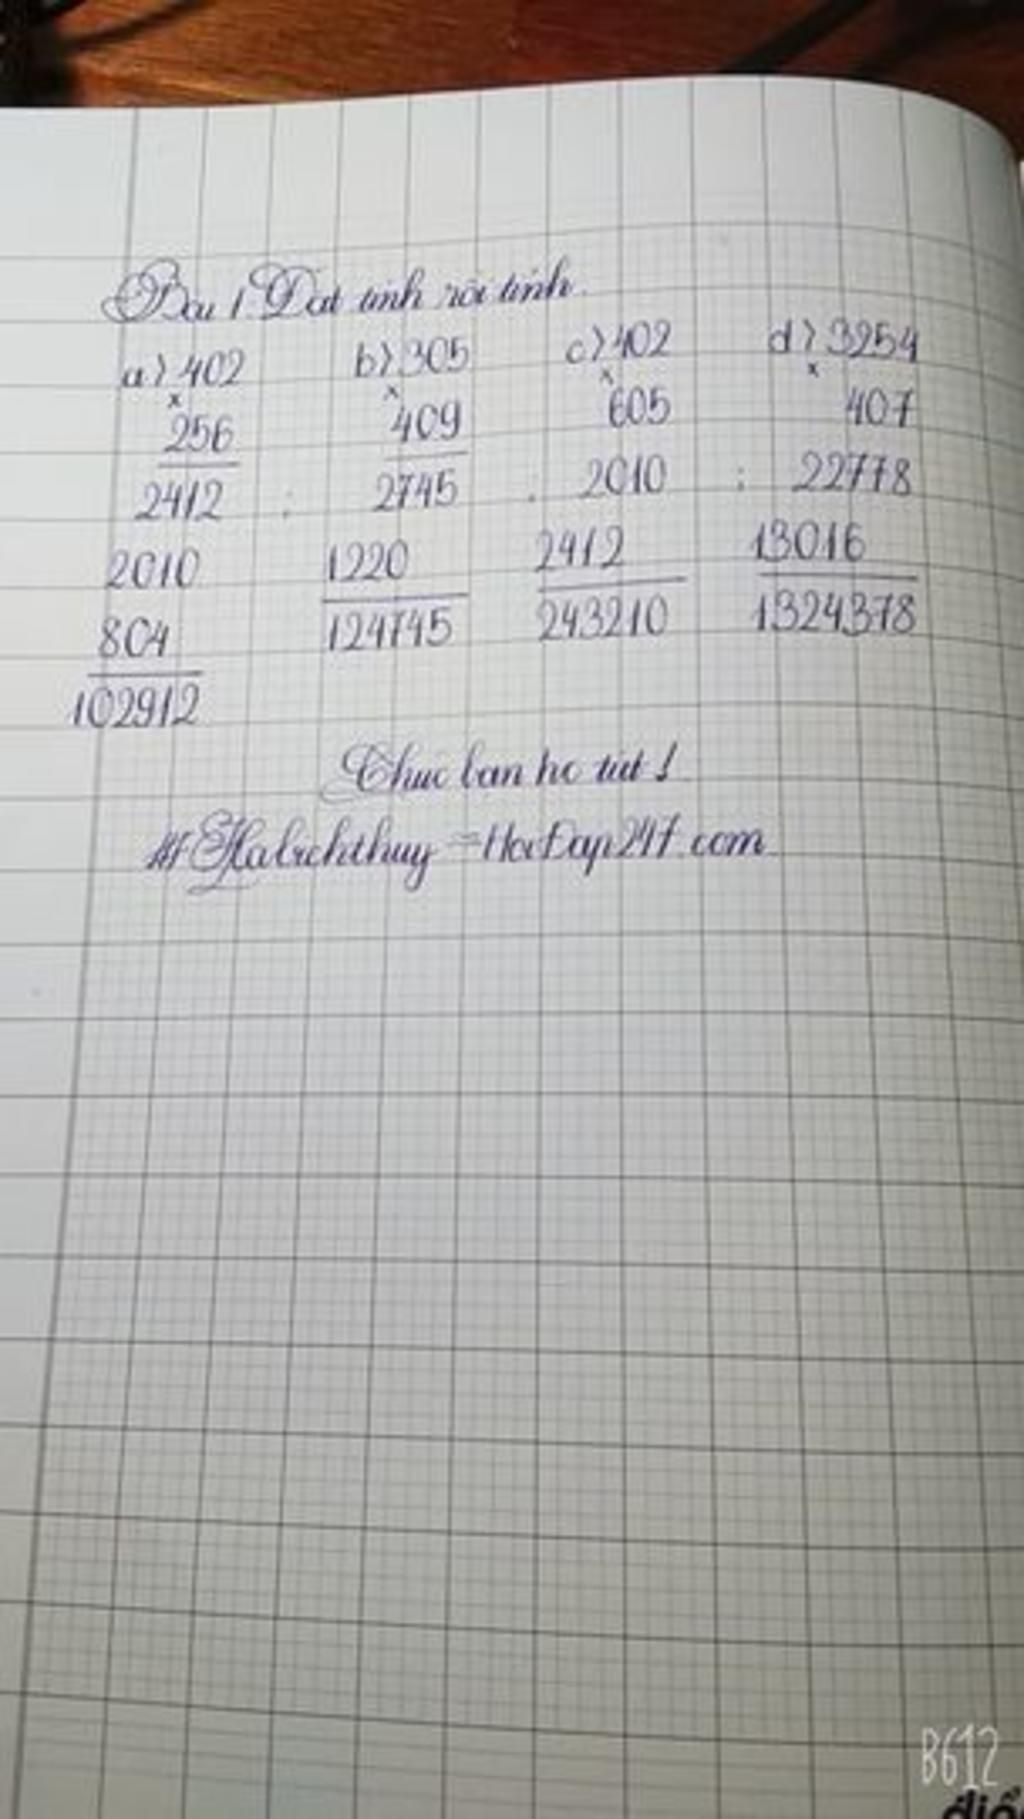 Bài 1 Đặt tính rồi tính.
a) 402 b) 305 c) 402 d) 3254
x x x x
256 409 605 407
2412 ; 2745 . 2010 ; 22778
2010 1220 2412 13016
804 124745 243210 1324378
102912
Chúc bạn học tốt!
#Habichthuy = HoiDap247.com
B612